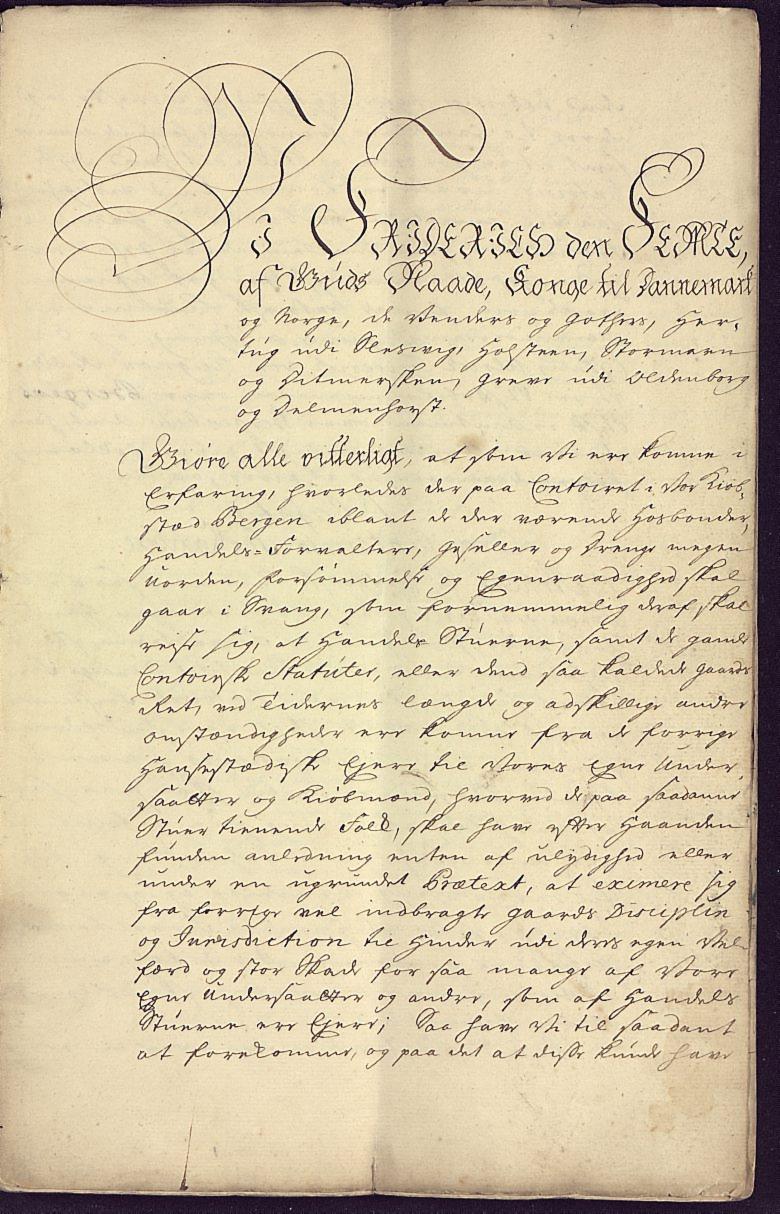 Vi FRIDERICH den FEMTE,
af Guds Naade, Konge til Dannemark
og Norge, de Venders og Gothers, Her-
tug udi Sleswig, Holsteen, Stormarn
og Ditmersken, Greve udi Oldenborg
og Delmenhorst.
Giöre alle vitterligt, at som Vi ere komne i
Erfaring, hvorledes der paa Contoiret i Vor Kiöb-
stæd Bergen iblant de der værende Hosbonder,
Handels-Forvaltere, Geseller og Drenge megen
Uorden, Forsömmelse og Egenraadighed skal
gaae i Svang, som fornemmelig deraf skal
reise sig, at Handels Stuerne, samt de gamle
Contoirske Statuter, eller dend saa kaldede Gaards
Ret, ved Tidernes længde og adskillige andre
omstændigheder ere komne fra de forrige
Hansestædiske Ejere til Vores Egne Under-
saatter og Kiöbmænd, hvorved de paa saadanne
Stuer tienende Folk, skal have efter Haanden
funden anledning enten af ulydighed eller
under en ugrundet Prætext, at eximere sig
fra forrige vel indbragte Gaards Disciplin
og Jurisdiction til Hinder udi deres egen Vel-
færd og stor Skade for saa mange af Vore
Egne Undersaatter og andre, som af Handels
Stuerne ere Ejere; Saa have Vi til saadant
at forekomme, og paa det at disse kunde have